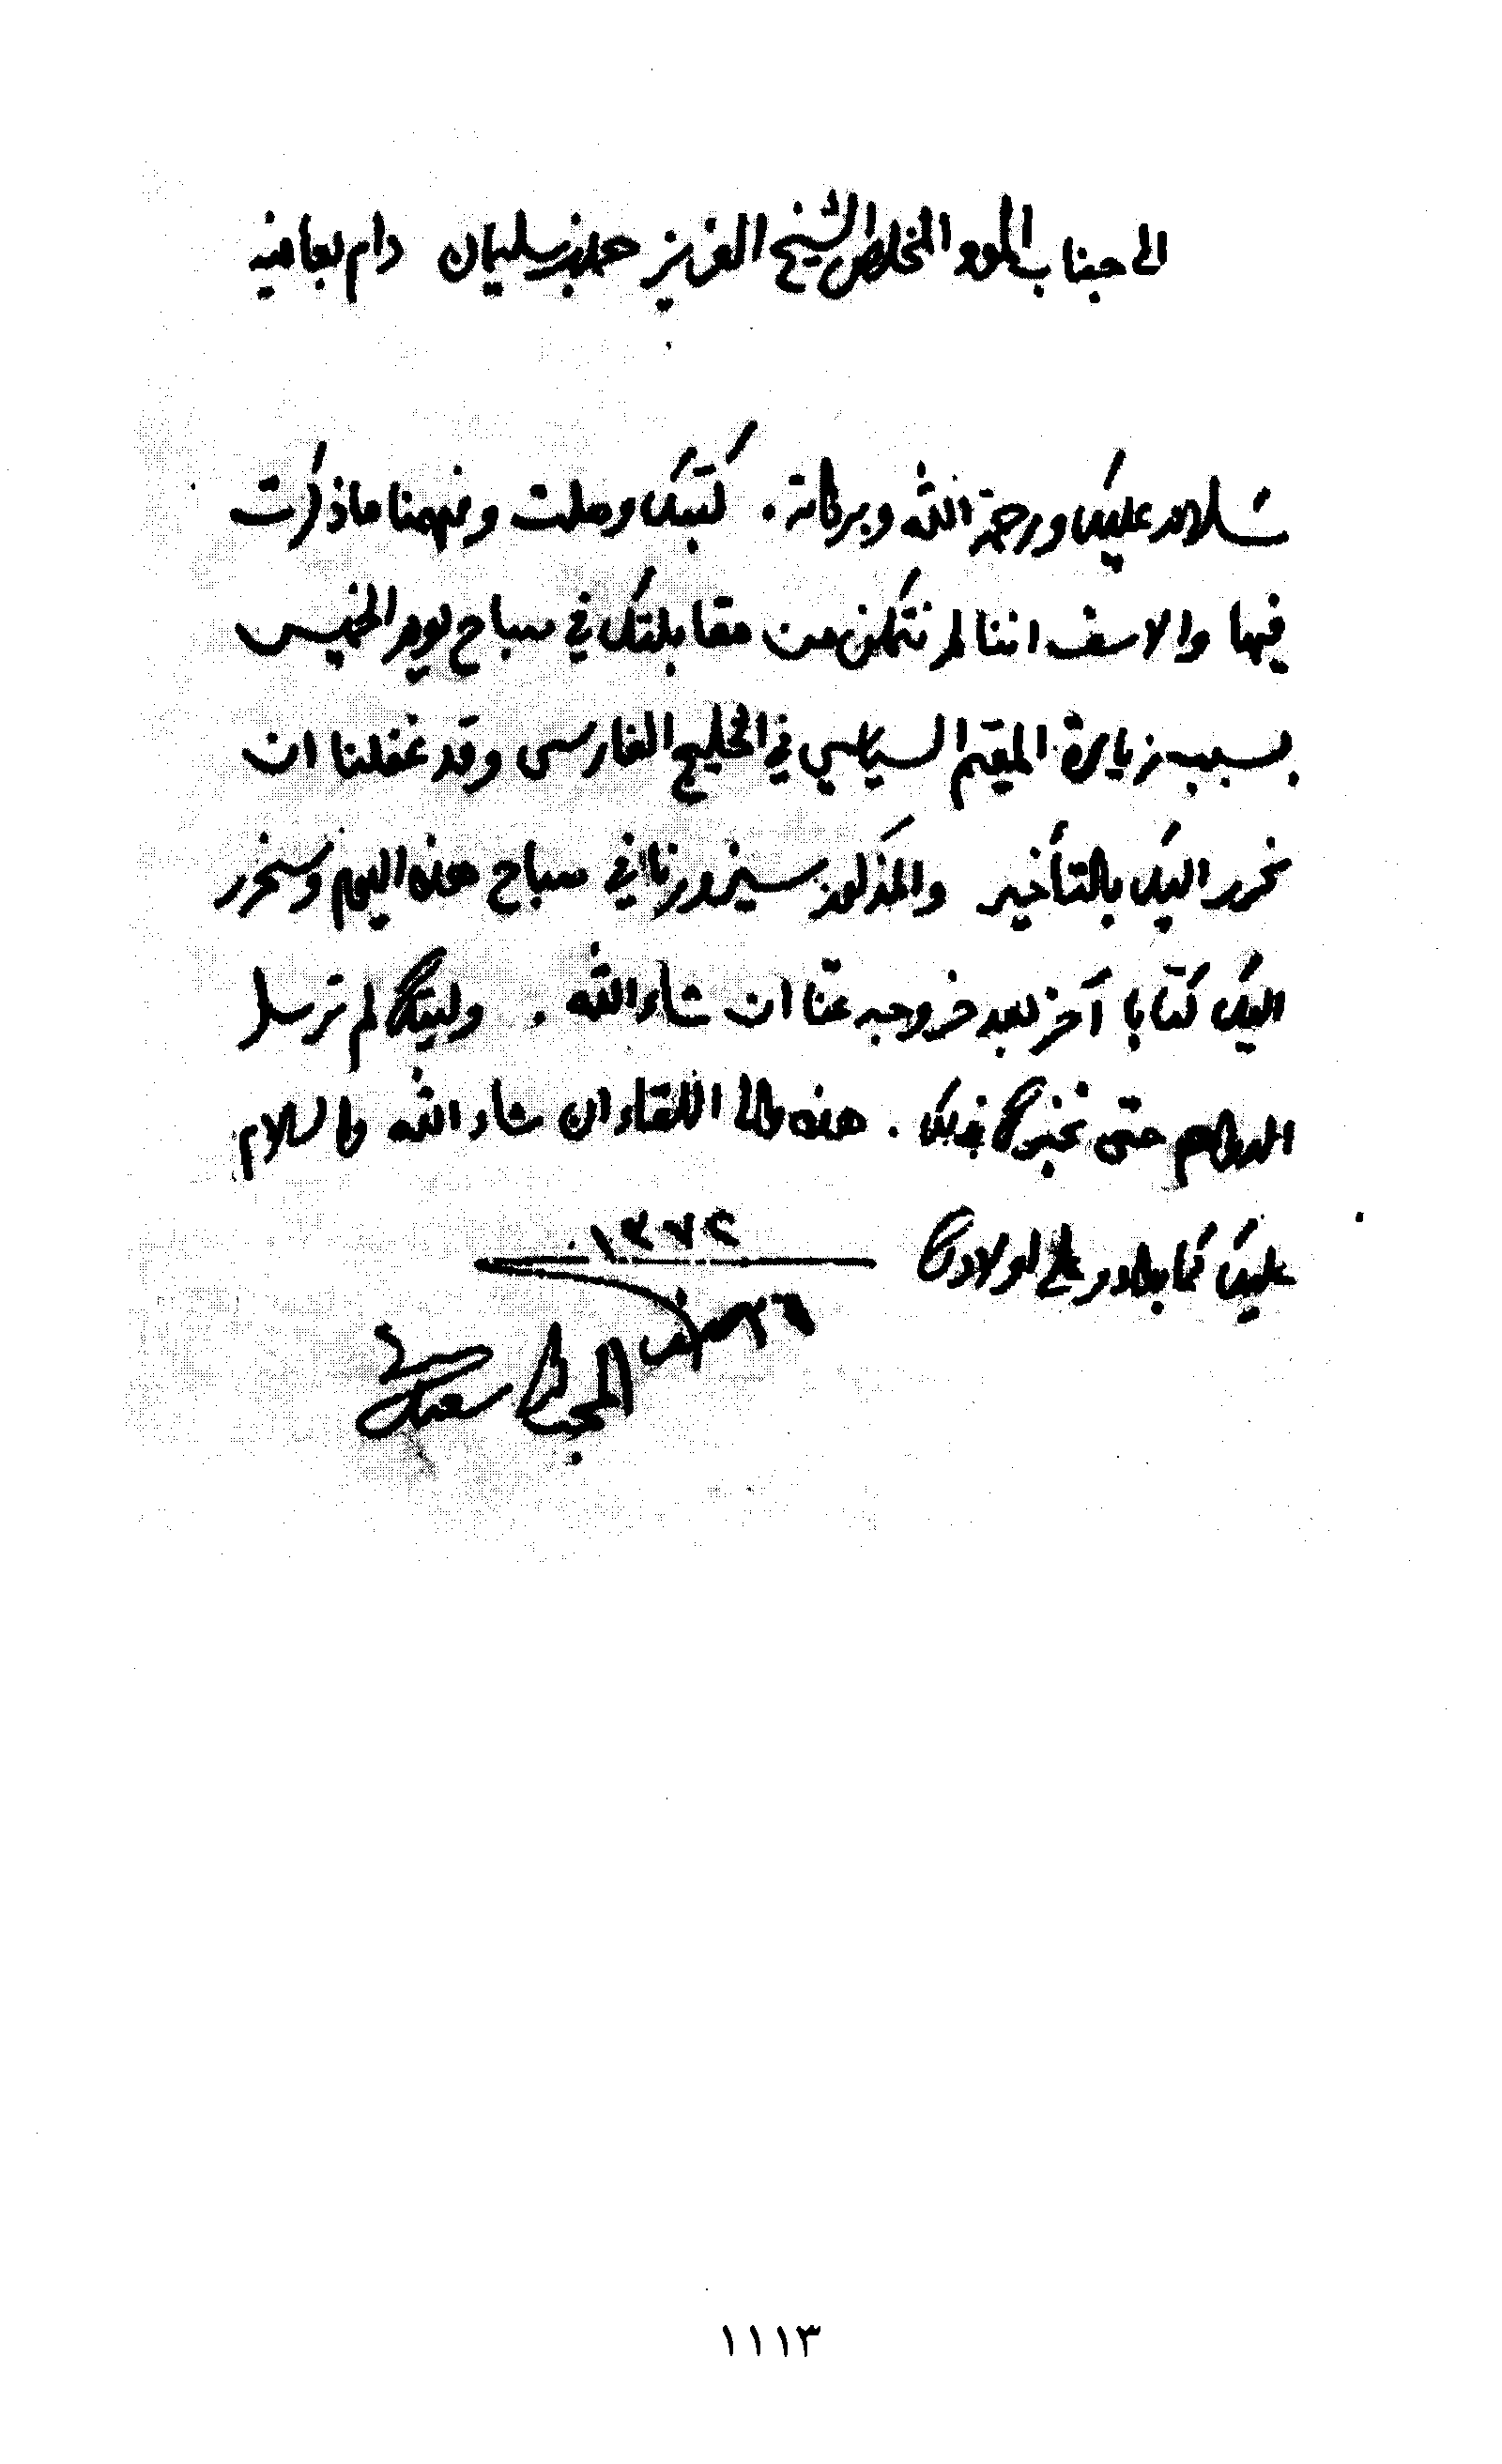 الى جناب المود المخلص الشيخ العزيز حمد بن سليمان دام بعافيه
سلام عليك ورحمة الله وبركاته . كتبك وصلت وفهمنا ماذكرت
فيها والاسف اننا لم نتمكن من مقابلتك في صباح يوم الخميس
بسبب زيارة المقيم السياسي في الخليج الفارسي وقد غفلنا ان
نحرر اليك بالتأخير والمذكور سيزورنا في صباح هذه اليوم وسنحرر
اليك كتابا آخر بعد خروجه عنّا ان شاء الله . وليتك لم ترسل
الدراهم حتى نخبرك بذلك . هذه والى اللقاء ان شاء الله والسلام
عليك كما بادر على اولادك
١٣٧٢
٢٦ صفر
المحب سعيد
١١١٣